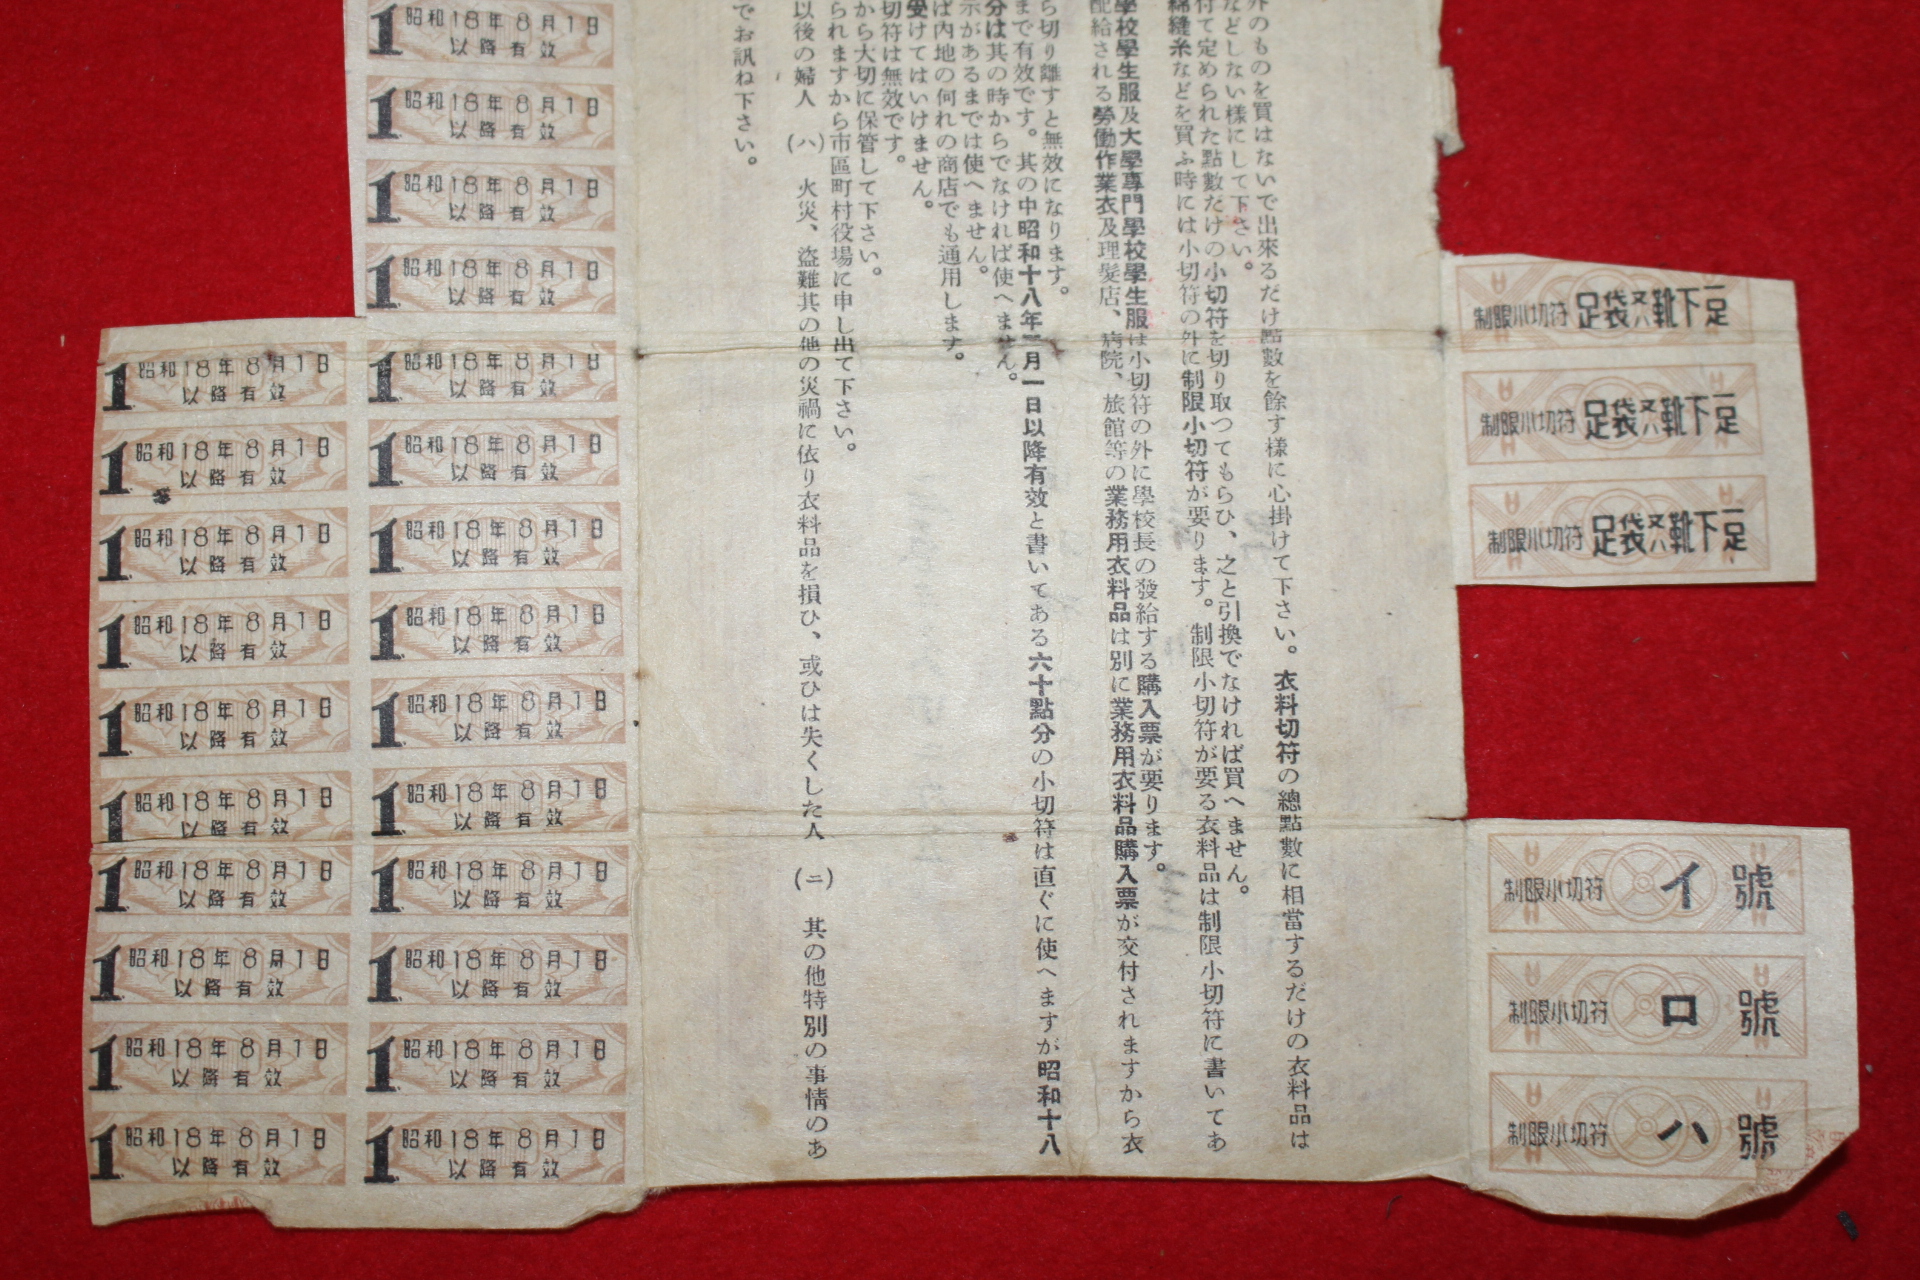 制限小切符 足袋又ハ靴下一足
制限小切符 足袋又ハ靴下一足
制限小切符 足袋又ハ靴下一足
制限小切符 イ 號
制限小切符 ロ 號
制限小切符 ハ 號
外のものを買はないで出來るだけ點數を餘す樣に心掛けて下さい。衣料切符の總點數に相當するだけの衣料品は
などしない樣にして下さい。
付て定められた點數だけの小切符を切り取つてもらひ、之と引換でなければ買へません。
綿縫糸などを買ふ時には小切符の外に制限小切符が要ります。制限小切符が要る衣料品は制限小切符に書いてあ
學校學生服及大學專門學校學生服は小切符の外に學校長の發給する購入票が要ります。
配給される勞働作業衣及理髮店、病院、旅館等の業務用衣料品は別に業務用衣料品購入票が交付されますから衣
ら切り離すと無效になります。
まで有效です。其の中昭和十八年二月一日以降有效と書いてある六十點分の小切符は直ぐに使へますが昭和十八
分は其の時からでなければ使へません。
示があるまでは使へません。
ば内地の何れの商店でも通用します。
受けてはいけません。
切符は無效です。
から大切に保管して下さい。
られますから市區町村役場に申し出て下さい。
以後の婦人 (ハ) 火災、盜難其の他の災禍に依り衣料品を損ひ、或ひは失くした人 (ニ) 其の他特別の事情のあ
でお訊ね下さい。
1 昭和18年8月1日
以降有效
1 昭和18年8月1日
以降有效
1 昭和18年8月1日
以降有效
1 昭和18年8月1日
以降有效
1 昭和18年8月1日
以降有效
1 昭和18年8月1日
以降有效
1 昭和18年8月1日
以降有效
1 昭和18年8月1日
以降有效
1 昭和18年8月1日
以降有效
1 昭和18年8月1日
以降有效
1 昭和18年8月1日
以降有效
1 昭和18年8月1日
以降有效
1 昭和18年8月1日
以降有效
1 昭和18年8月1日
以降有效
1 昭和18年8月1日
以降有效
1 昭和18年8月1日
以降有效
1 昭和18年8月1日
以降有效
1 昭和18年8月1日
以降有效
1 昭和18年8月1日
以降有效
1 昭和18年8月1日
以降有效
1 昭和18年8月1日
以降有效
1 昭和18年8月1日
以降有效
1 昭和18年8月1日
以降有效
1 昭和18年8月1日
以降有效